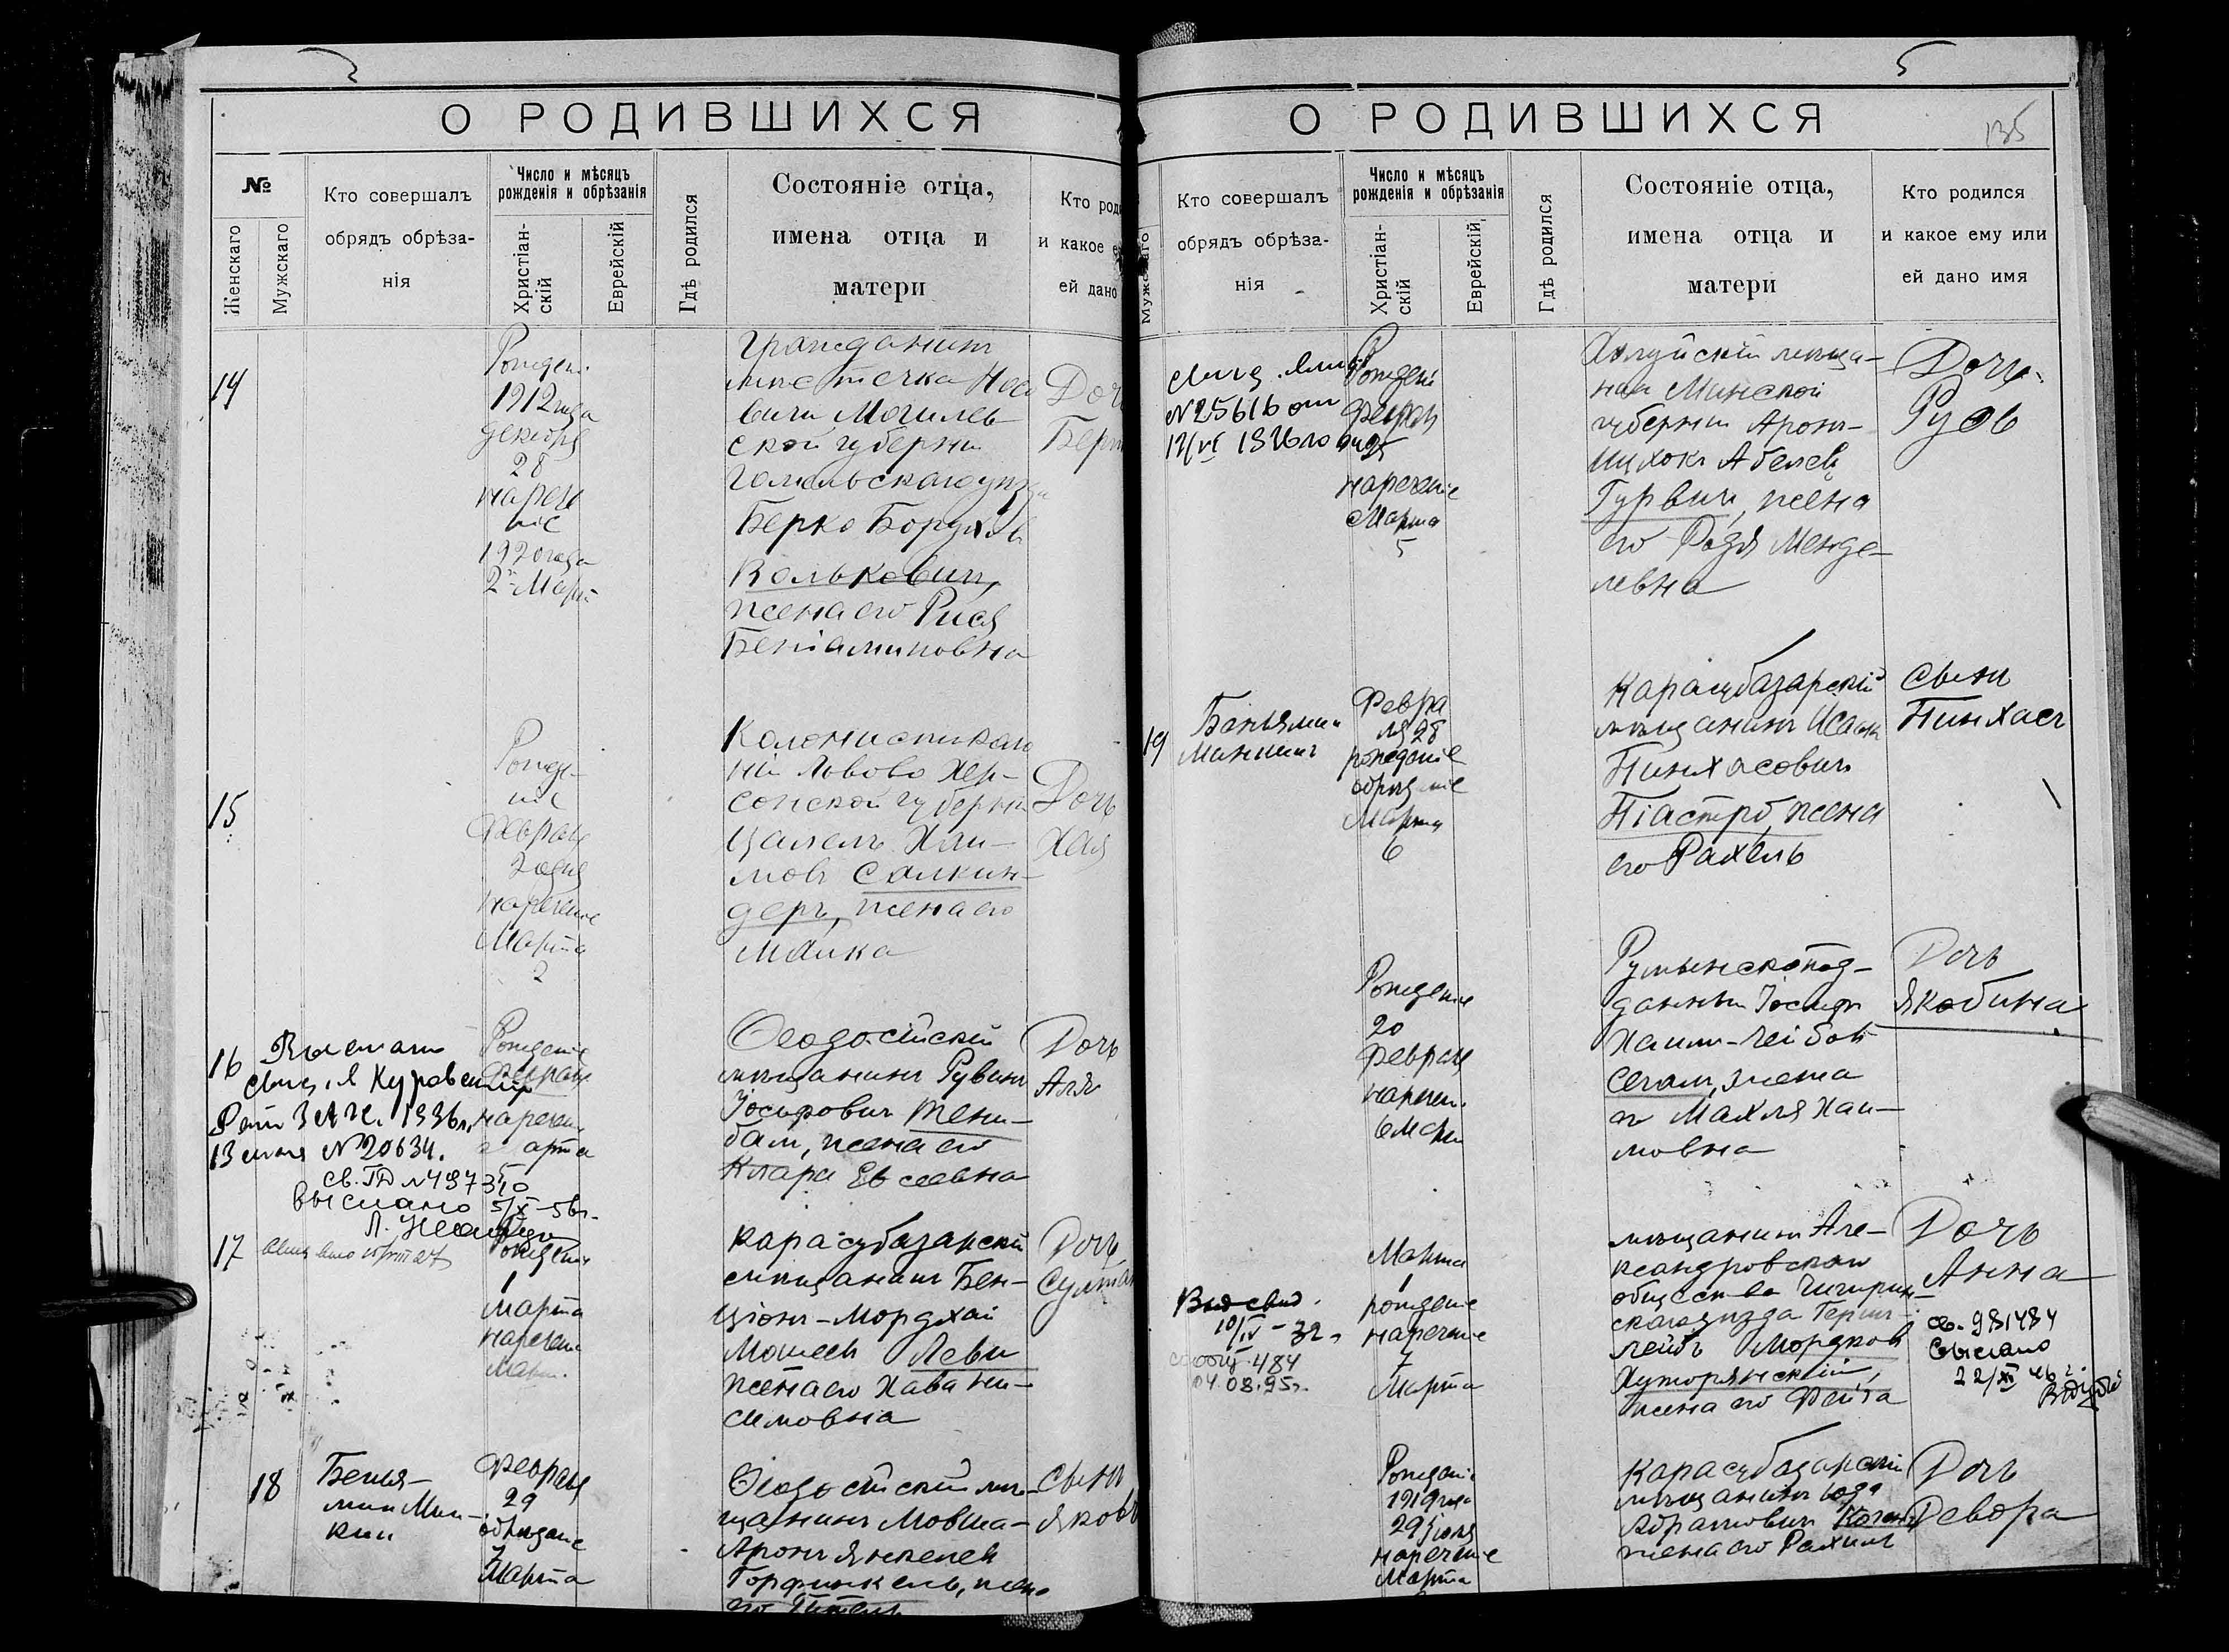 О РОДИВШИХСЯ
№
Женскаго
Мужскаго
Кто совершалъ
обрядъ обрѣза-
нія
Число и мѣсяцъ
рожденія и обрѣзанія
Христіан-
скій
Еврейскій
Гдѣ родился
Состояніе отца,
имена отца и
матери
Кто род
и какое е
ей дано
14
Рожден.
1912 года
декабря
28
нарече
ніе
1920 года
2 Март
Гражданинъ
мѣстечка
Могилев
ской губерніи
Гомельскаго уѣзда
Берко Борухов
Волькович,
жена его Рися
Беніаминовна
Доч
Берт
15
Рожде-
ніе
Февраля
нареченіе
Марта
2
Львово Хер-
сонской губерніи
Цалель Хаи-
мовъ Салкин-
деръ, жена его
Малка
Дочь
Хая
16
Выслано
Рожденіе
Февраля
нарече
Марта
5
13 июня № 20634.
выслано 5/X-5
Ѳеодосійскій
мѣщанинъ Рувинъ
Іосифович Тени-
бам, жена его
Клара Евсеевна
Дочь
Аля
17
Рожденіе
1
Марта
наречен
Карасубазарскій
мѣщанинъ Бен-
ціонъ-Мордхай
Мошеевъ Леви
жена его Хава Ни-
симовна
Дочь
Султан
18
Бенья-
мин Мин-
кин
Февраля
29
обрѣзаніе
7
Марта
Ѳеодосійскій мѣ-
щанинъ Мовша-
Аронъ Янкелев
Горфинкель, жена
его
Сынъ
Яковъ
О РОДИВШИХСЯ
135
Мужскаго
Кто совершалъ
обрядъ обрѣза-
нія
Число и мѣсяцъ
рожденія и обрѣзанія
Христіан-
скій
Еврейскій
Гдѣ родился
Состояніе отца,
имена отца и
матери
Кто родился
и какое ему или
ей дано имя
№ 25616 от
Рожден
Феврал
25
нареченіе
Марта
5
мѣща-
нин Минской
губерніи Аронъ-
Ицхокъ Абелев
Гурвич, жена
его Фодя Менде-
левна
Дочь
Руфь
19
Беньямин
Минкинъ
Февра
ля 28
рожденіе
обрѣзаніе
Марта
6
Карасубазарскій
мѣщанинъ Исаакъ
Пинхасович
Піастро, жена
его Рахель
Сынъ
Пинхасъ
Рожденіе
20
Февраля
наречен.
6 Март
Румынскопод-
данный Іосифъ
Хаим-Лейбов
Сегал, жена
его Махля Хаи-
мовна
Дочь
Якобина
10/IV - 32
484
04.08.95г.
Марта
1
рожденіе
нареченіе
7
Марта
мѣщанинъ Але-
ксандровскаго
общества Чигирин-
скаго уѣзда Герш-
Лейбъ Мордков
Хуторянскій,
жена его Фейга
Дочь
Анна
св. 981484
Выслано
22/XI 46 г.
Рожденіе
1919 года
29 Іюля
нареченіе
Марта
Карасубазарскій
мѣщанинъ Іуда
Абрамович Коген
жена его Рахиль
Дочь
Девора